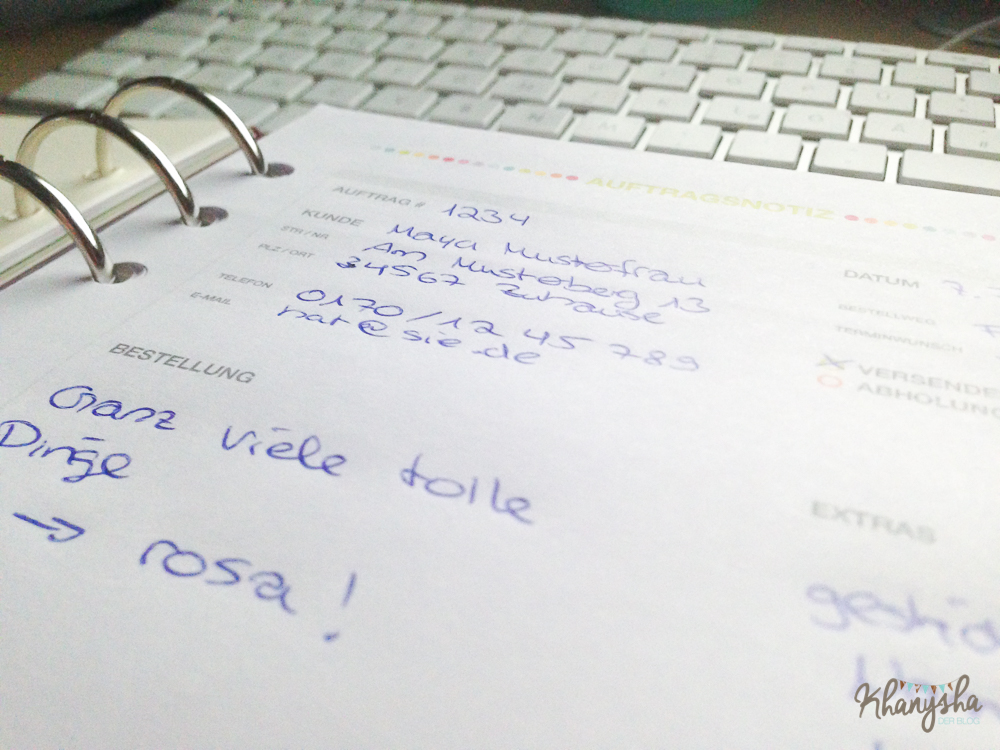 AUFTRAGSNOTIZ
AUFTRAG # 1234
KUNDE Maya Mustefrau
STR / NR Am Musteberg 13
PLZ / ORT 34567 Zuhause
TELEFON 0170 / 12 45 789
E-MAIL hat@sie.de
DATUM 7.
BESTELLWEG
TERMINWUNSCH
X VERSENDE
ABHOLUNG
BESTELLUNG
Ganz viele tolle
Dinge
→ rosa!
EXTRAS
Khanysha
DER BLOG